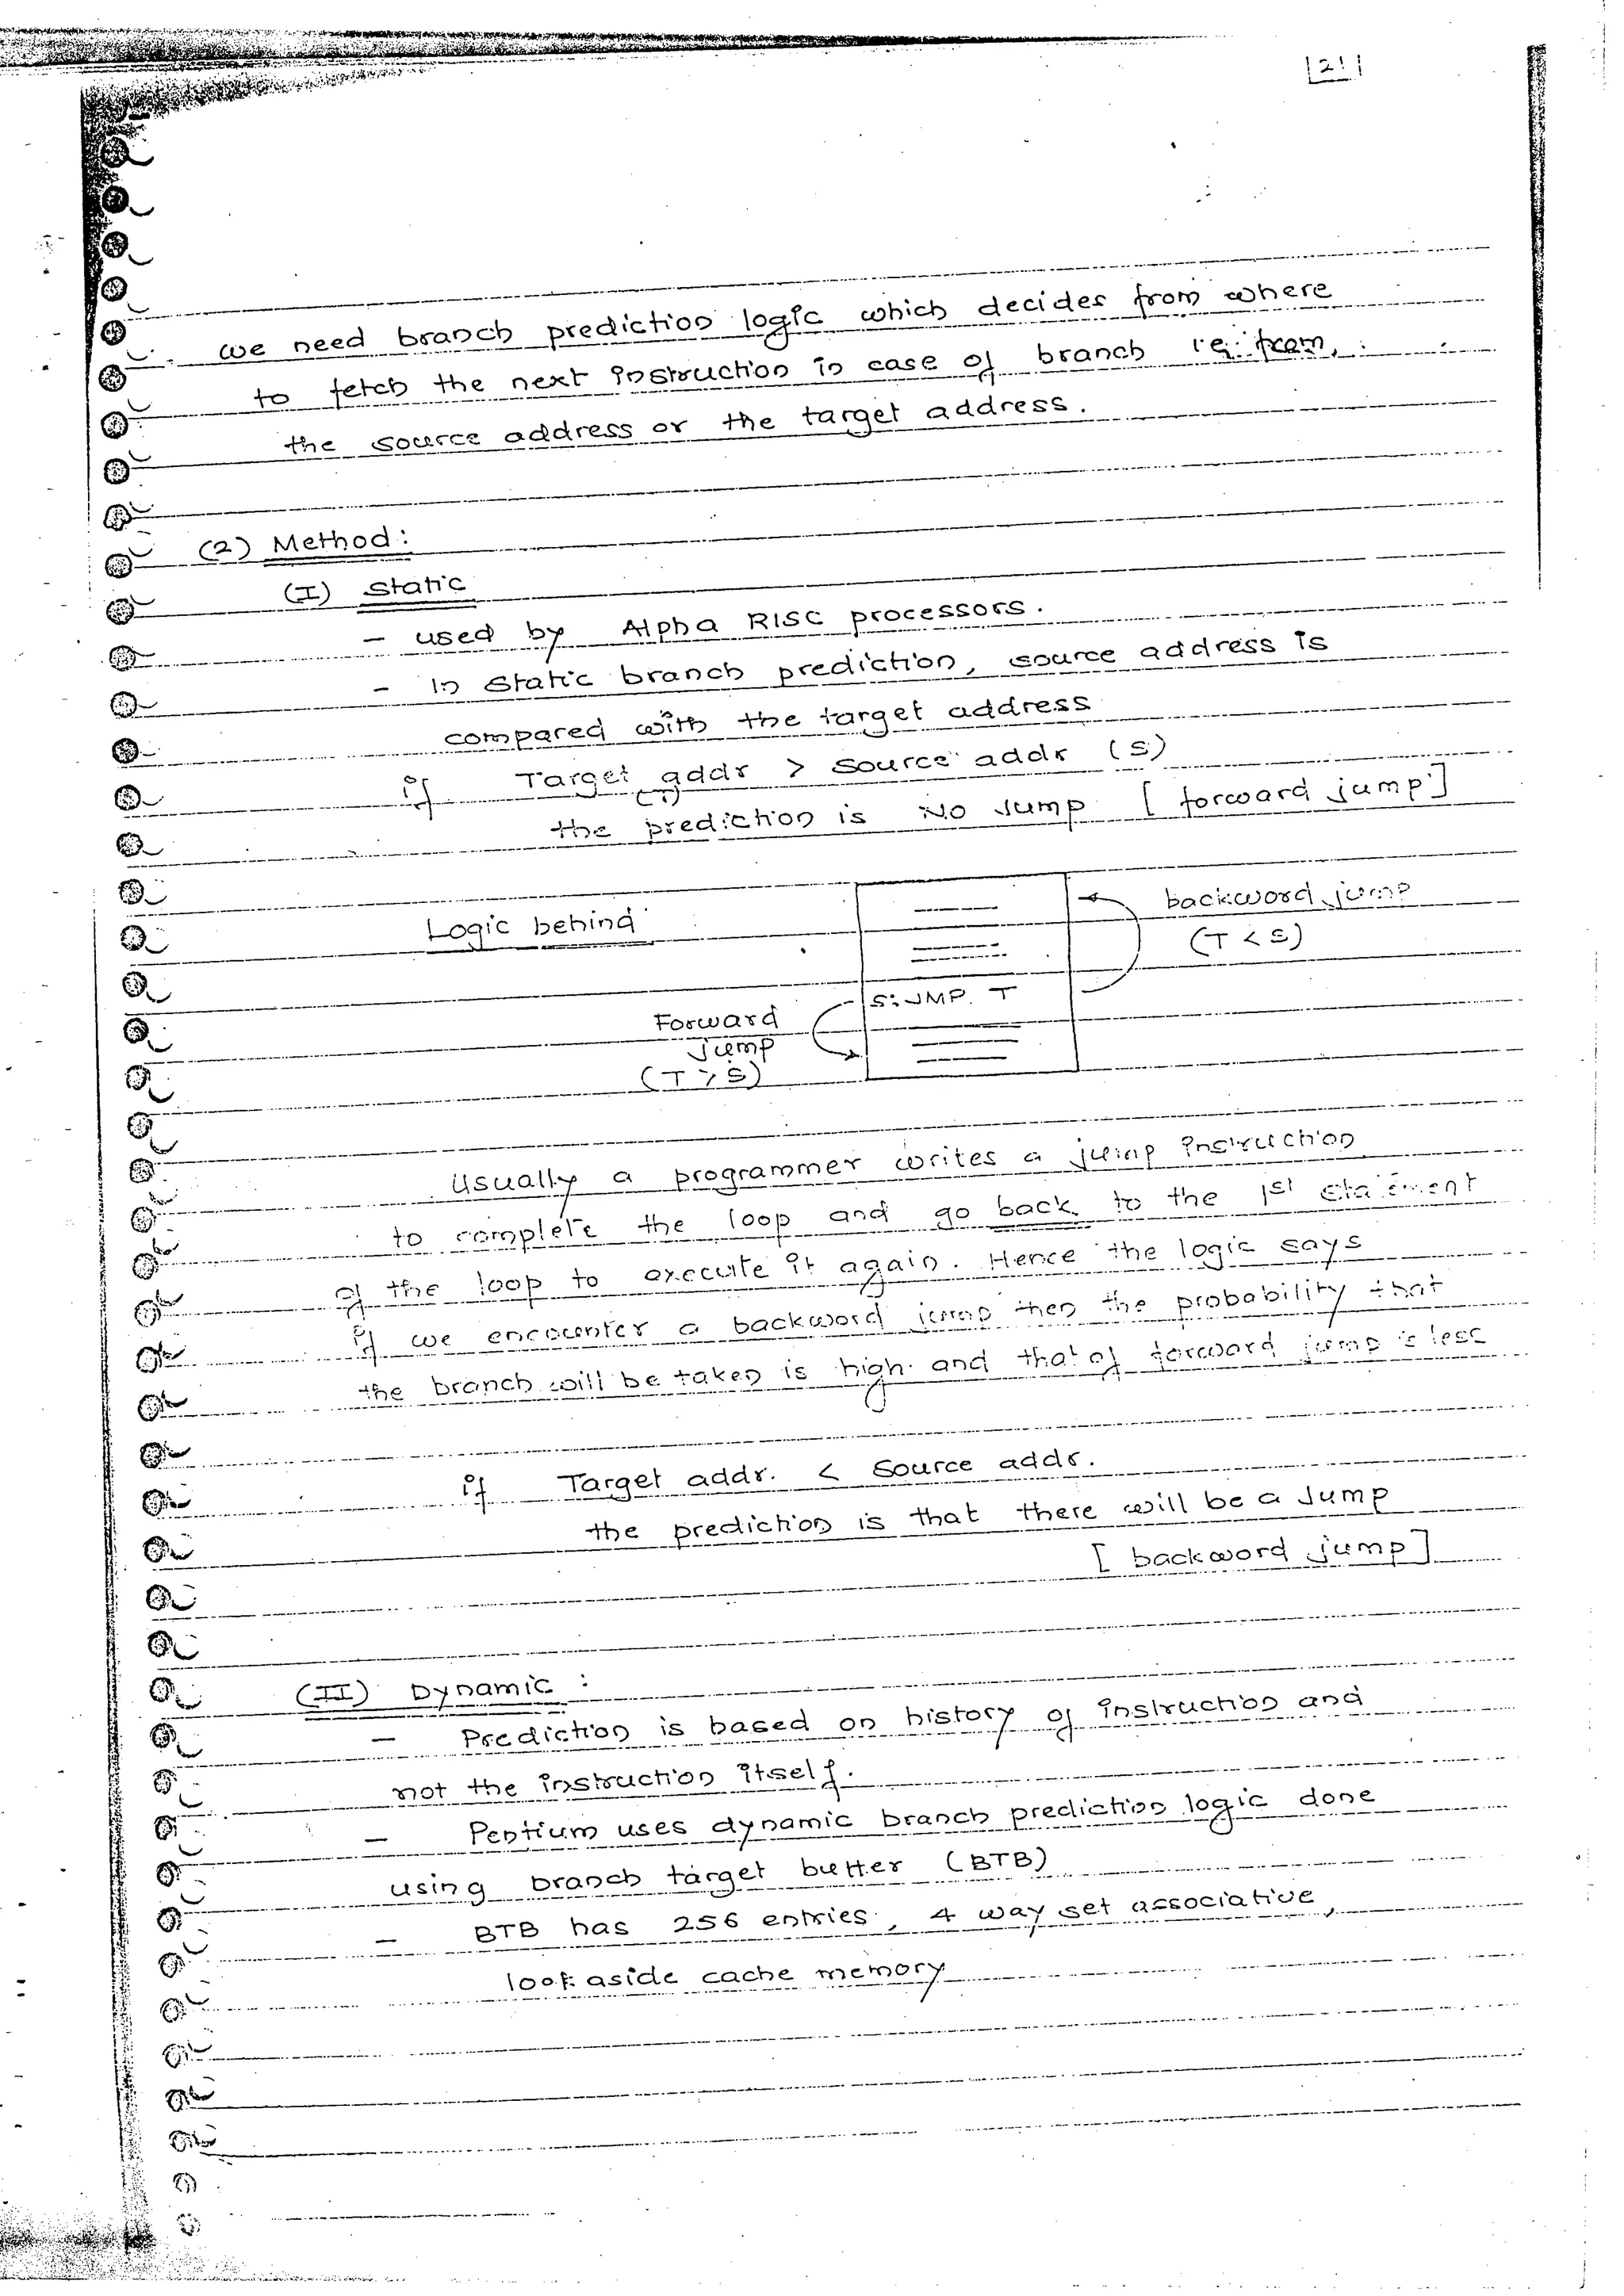 121
∴ we need branch prediction logic which decides from where
to fetch the next instruction in case of branch ie. from
the source address or the target address.
(2) Method:
(I) Static
- used by Alpha RISC processors.
- In static branch prediction, source address is
compared with the target address
if Target addr > Source addr (S)
(T)
the prediction is No Jump [forward jump]
Logic behind
backword jump
(T < S)
S: JMP. T
Forward
jump
(T > S)
Usually a programmer writes a jump instruction
to complete the loop and go back to the 1st statement
of the loop to execute it again. Hence the logic says
if we encounter a backword jump then the probability that
the branch will be taken is high and that of forword jump is less
if Target addr. < Source addr.
the prediction is that there will be a Jump
[backword jump]
(II) Dynamic :
- Prediction is based on history of instruction and
not the instruction itself.
- Pentium uses dynamic branch prediction logic done
using branch target buffer (BTB)
- BTB has 256 entries, 4 way set associative,
look aside cache memory